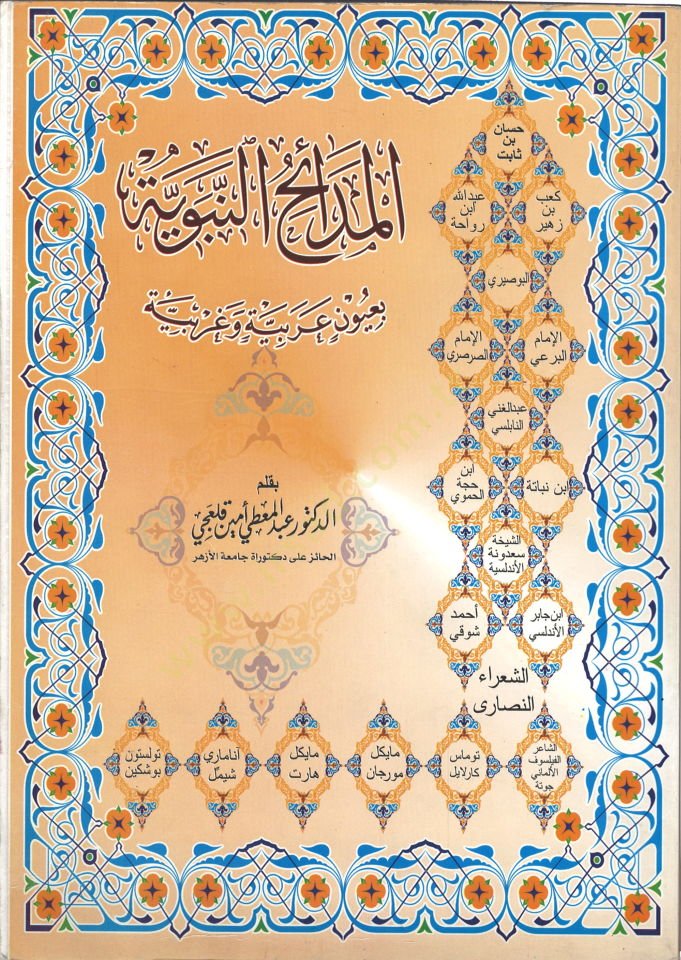 المدائح النبوية
بعيون عربية وغربية
بقلم
الدكتور عبد المعطي أمين قلعجي
الحائز على دكتوراة جامعة الأزهر
حسان
بن
ثابت
كعب
بن
زهير
عبدالله
ابن
رواحة
البوصيري
الإمام
البرعي
الإمام
الصرصري
عبدالغني
النابلسي
ابن نباتة
ابن
حجة
الحموي
الشيخة
سعدونة
الأندلسية
ابن جابر
الأندلسي
أحمد
شوقي
الشعراء
النصارى
الشاعر
الفيلسوف
الألماني
جوتة
توماس
كارلايل
مايكل
مورجان
مايكل
هارت
أناماري
شيمل
تولستون
بوشكين